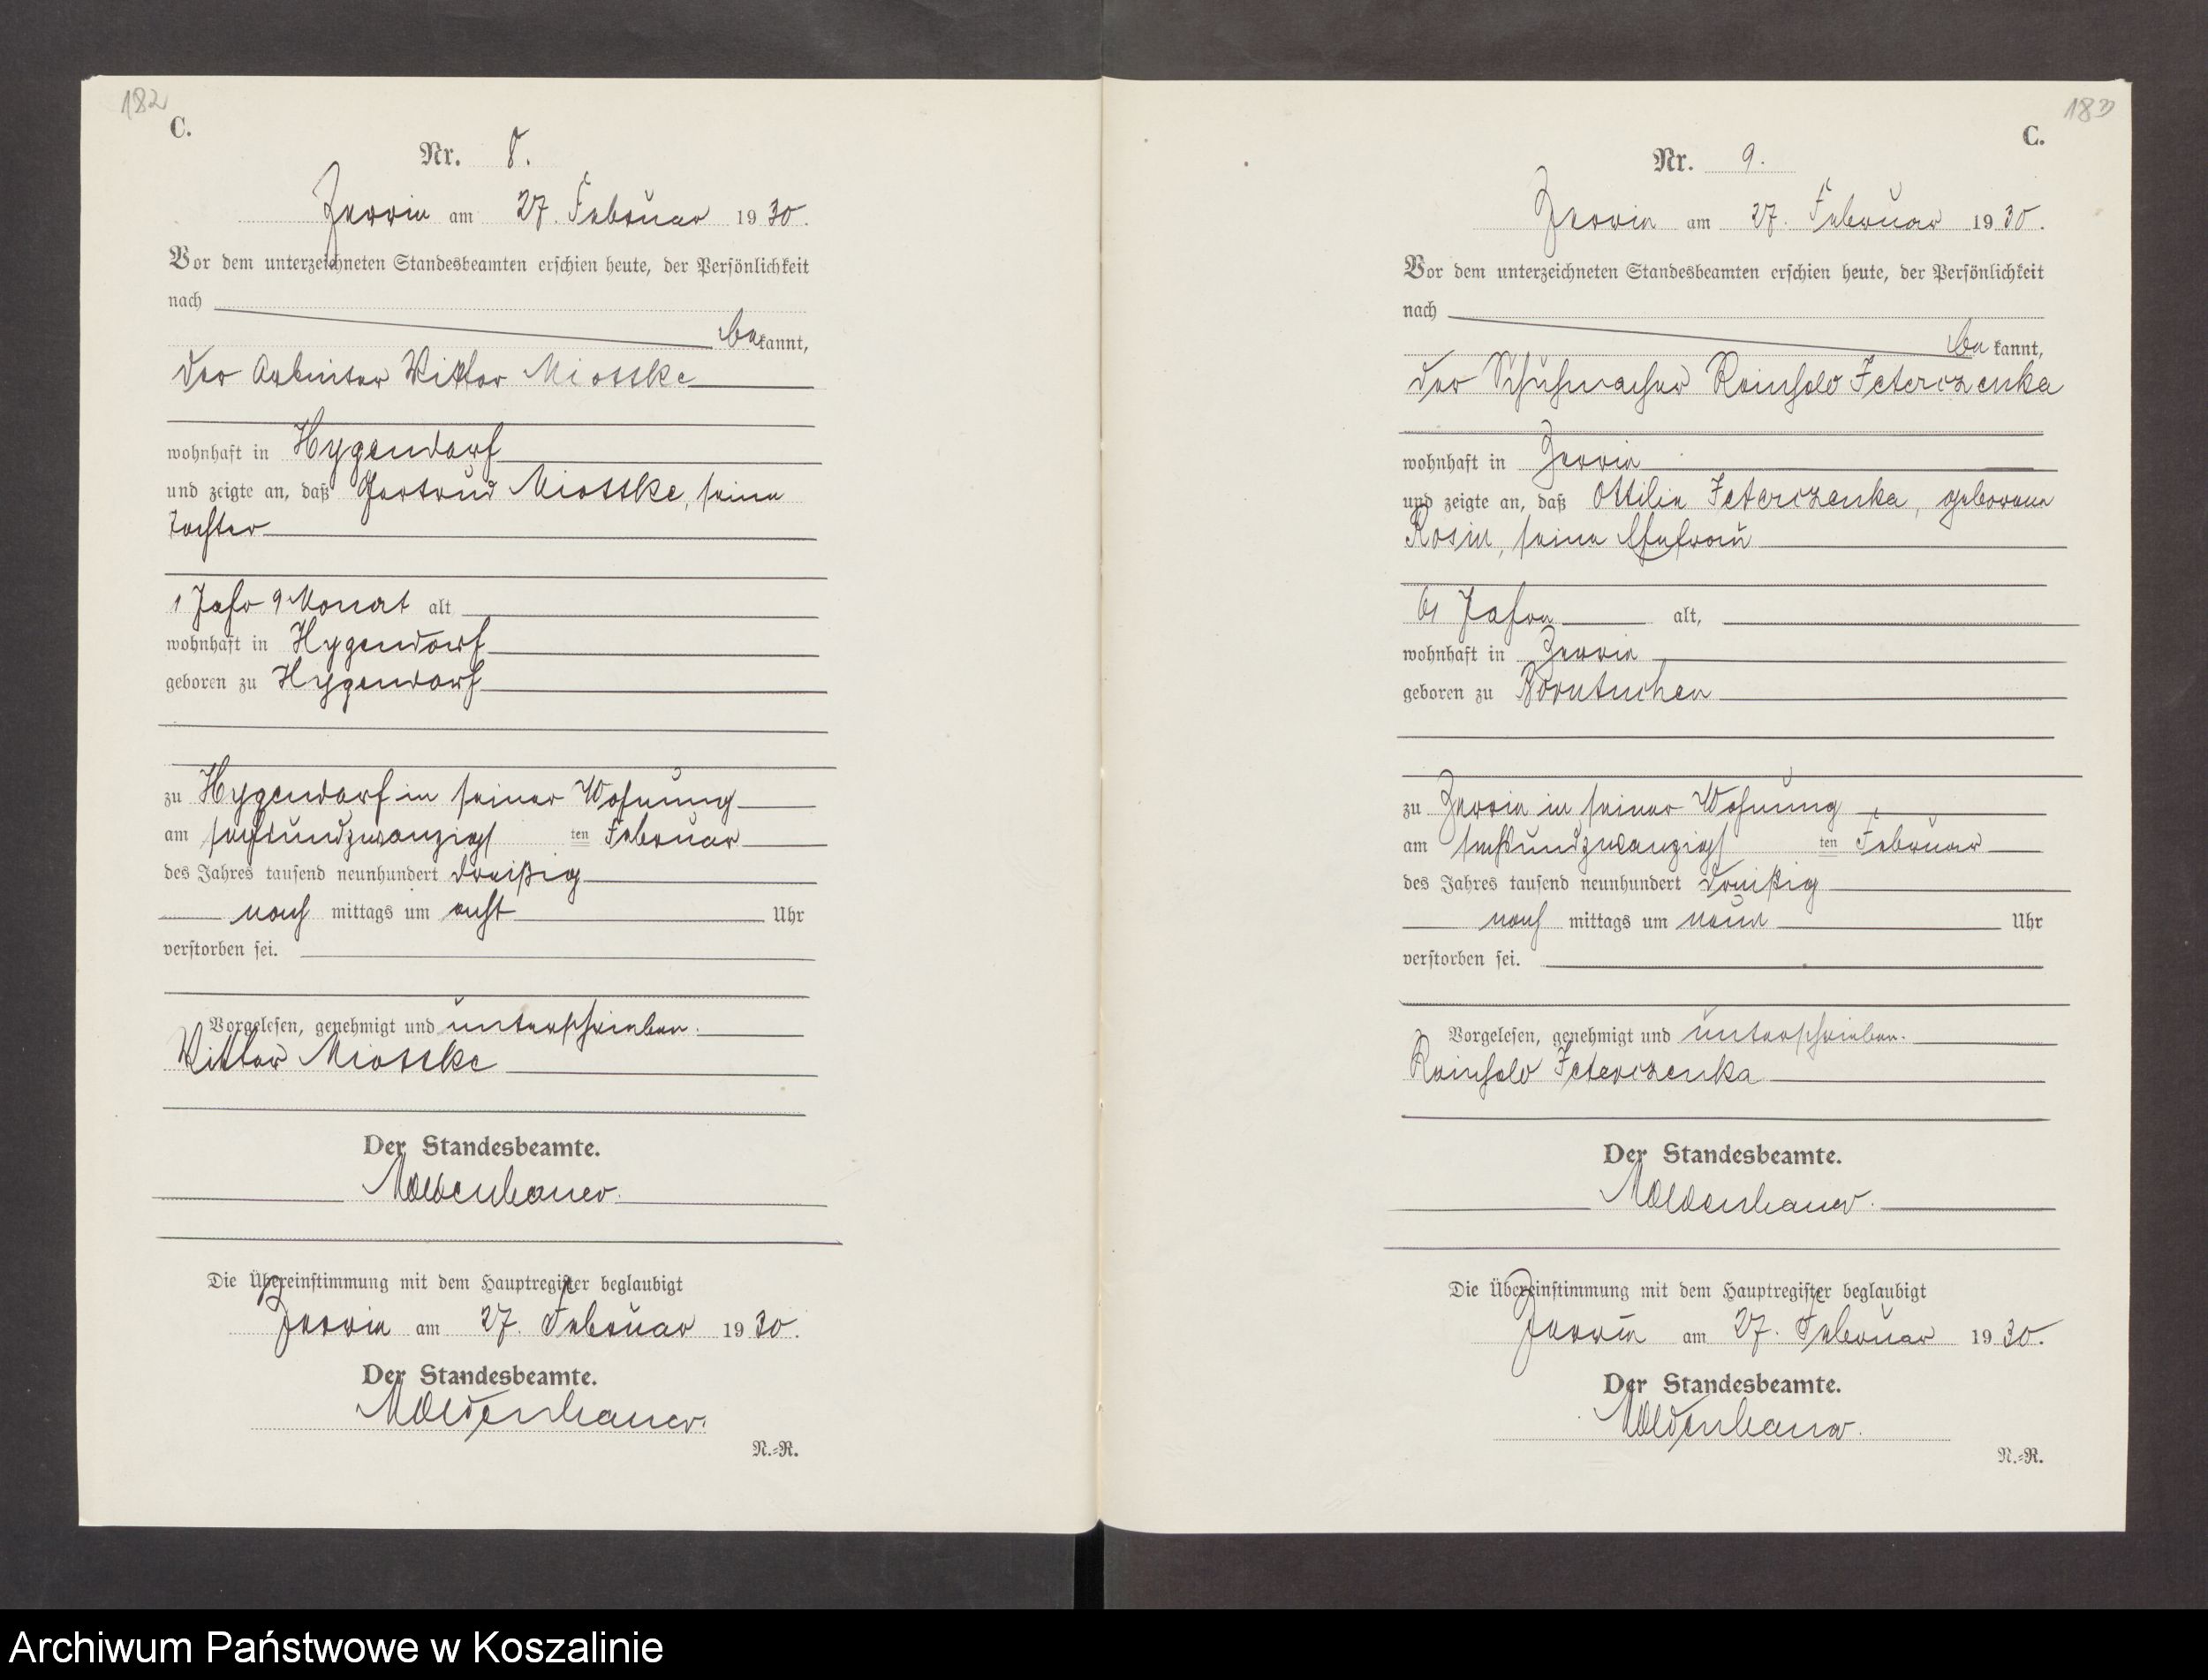 182
C.
Nr. 8.
Zerrin am 27. Februar 1930.
Vor dem unterzeichneten Standesbeamten erschien heute, der Persönlichkeit
nach
bekannt,
der Arbeiter Viktor Miosske
wohnhaft in Hygendorf
und zeigte an, daß Gertrud Miosske, seine
Tochter
1 Jahr 9 Monat alt
wohnhaft in Hygendorf
geboren zu Hygendorf
zu Hygendorf in seiner Wohnung
am sechsundzwanzigsten Februar
des Jahres tausend neunhundert dreißig
nach mittags um acht Uhr
verstorben sei.
Vorgelesen, genehmigt und unterschrieben.
Viktor Miosske
Der Standesbeamte.
Moldenhauer.
Die Übereinstimmung mit dem Hauptregister beglaubigt
Zerrin am 27. Februar 1930.
Der Standesbeamte.
Moldenhauer.
N.=R.
183
C.
Nr. 9.
Zerrin am 27. Februar 1930.
Vor dem unterzeichneten Standesbeamten erschien heute, der Persönlichkeit
nach
bekannt,
der Schuhmacher Reinhold Feterczenka
wohnhaft in Zerrin
und zeigte an, daß Ottilie Feterczenka, geborene
Rosin, seine Ehefrau
61 Jahre alt,
wohnhaft in Zerrin
geboren zu Borntuchen
zu Zerrin in seiner Wohnung
am sechsundzwanzigsten Februar
des Jahres tausend neunhundert dreißig
nach mittags um neun Uhr
verstorben sei.
Vorgelesen, genehmigt und unterschrieben.
Reinhold Feterczenka
Der Standesbeamte.
Moldenhauer.
Die Übereinstimmung mit dem Hauptregister beglaubigt
Zerrin am 27. Februar 1930.
Der Standesbeamte.
Moldenhauer.
N.=R.
Archiwum Państwowe w Koszalinie